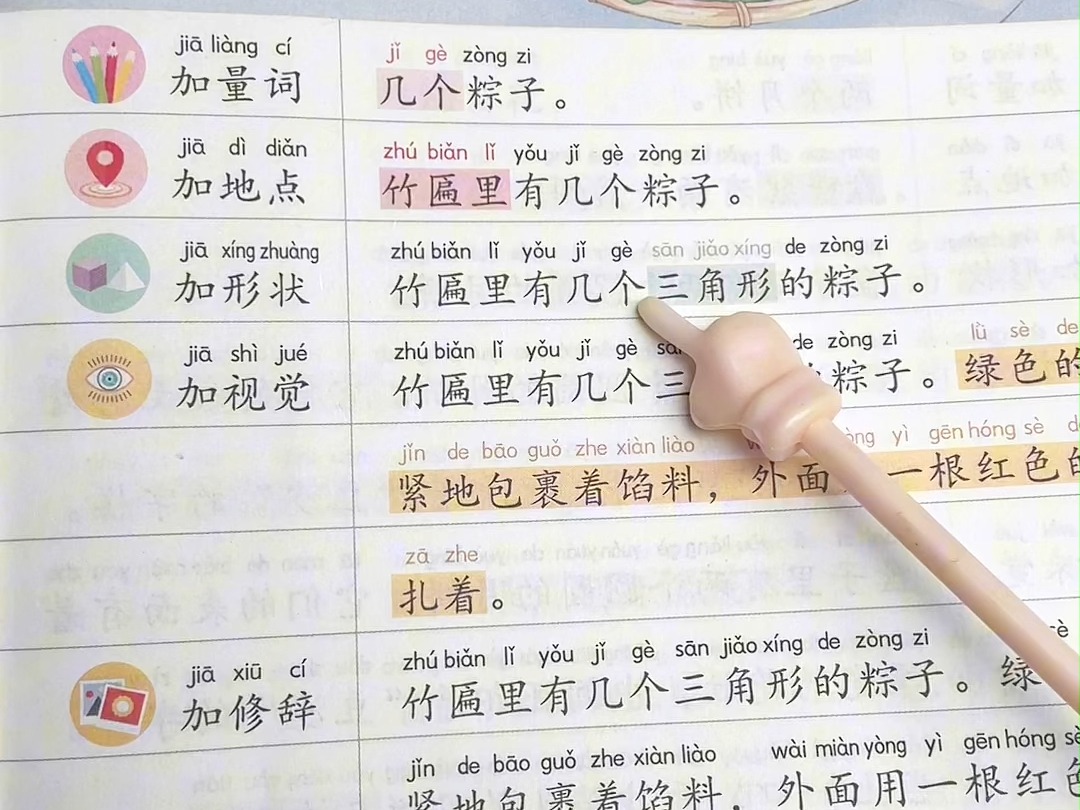 jiā liàng cí
加量词
jǐ gè zòng zi
几个粽子。
jiā dì diǎn
加地点
zhú biǎn lǐ yǒu jǐ gè zòng zi
竹匾里有几个粽子。
jiā xíng zhuàng
加形状
zhú biǎn lǐ yǒu jǐ gè sān jiǎo xíng de zòng zi
竹匾里有几个三角形的粽子。
jiā shì jué
加视觉
zhú biǎn lǐ yǒu jǐ gè de zòng zi lǜ sè de
竹匾里有几个三粽子。绿色的
jǐn de bāo guǒ zhe xiàn liào yì gēn hóng sè
紧地包裹着馅料，外面一根红色的
zā zhe
扎着。
jiā xiū cí
加修辞
zhú biǎn lǐ yǒu jǐ gè sān jiǎo xíng de zòng zi
竹匾里有几个三角形的粽子。绿
jǐn de bāo guǒ zhe xiàn liào wài miàn yòng yì gēn hóng sè
紧地包裹着馅料，外面用一根红色